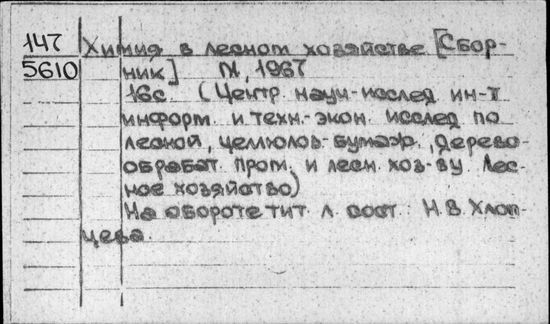 147 Химия в лесном хозяйстве [Сбор-
5610 ник] М, 1967
16с. (Центр. науч-исслед. ин-т
информ. и техн.-экон. исслед по
лесной, целлюлоз-бумаж., дерево-
обрабат. пром. и лесн. хоз-ву. Лес-
ное хозяйство)
На обороте тит. л. сост.: Н.В. Хлоп-
цева.